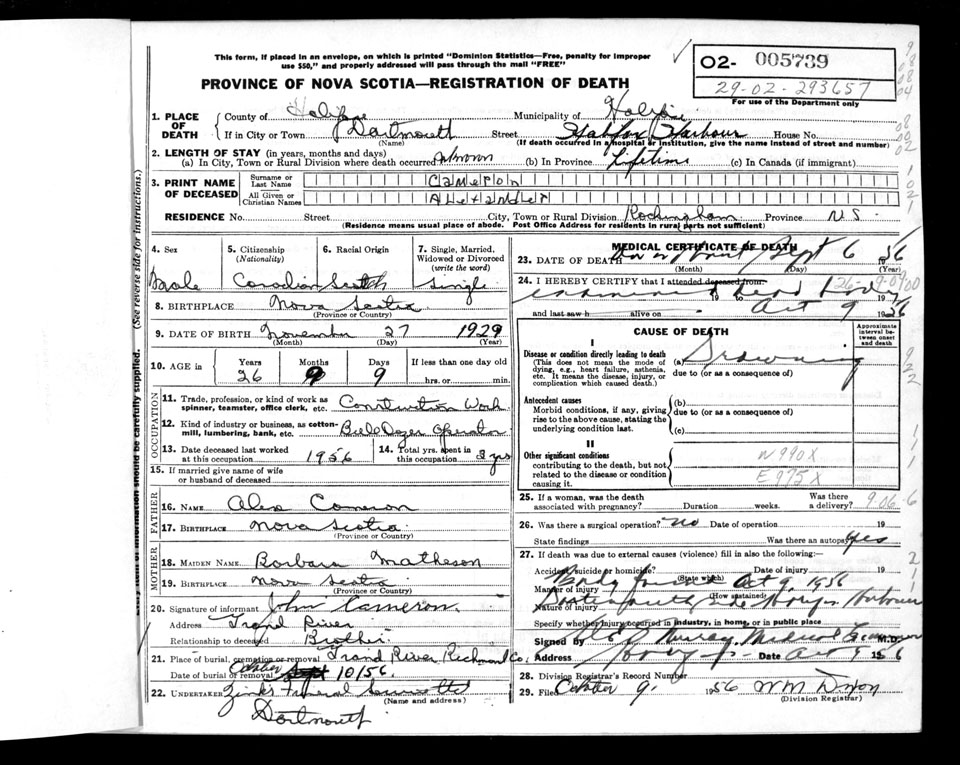 This form, if placed in an envelope, on which is printed "Dominion Statistics—Free, penalty for improper
use $50," and properly addressed will pass through the mail "FREE"
PROVINCE OF NOVA SCOTIA—REGISTRATION OF DEATH
O2- 005739
29-02-293657
For use of the Department only
1. PLACE OF DEATH
County of Halifax Municipality of Halifax
If in City or Town Dartmouth Street Halifax Harbour House No.
(Name) (If death occurred in a hospital or institution, give the name instead of street and number)
2. LENGTH OF STAY (in years, months and days)
(a) In City, Town or Rural Division where death occurred unknown (b) In Province Lifetime (c) In Canada (if immigrant)
3. PRINT NAME OF DECEASED
Surname or Last Name Cameron
All Given or Christian Names Alexander
RESIDENCE No. Street City, Town or Rural Division Rockingham Province N.S.
(Residence means usual place of abode. Post Office Address for residents in rural parts not sufficient)
(See reverse side for instructions.)
information should be carefully supplied.
4. Sex Male
5. Citizenship (Nationality) Canadian
6. Racial Origin Scotch
7. Single, Married, Widowed or Divorced (write the word) Single
8. BIRTHPLACE Nova Scotia
(Province or Country)
9. DATE OF BIRTH November 27 1929
(Month) (Day) (Year)
10. AGE in Years 26 Months 9 Days 9 If less than one day old hrs. or min.
OCCUPATION
11. Trade, profession, or kind of work as spinner, teamster, office clerk, etc. Construction Work
12. Kind of industry or business, as cotton-mill, lumbering, bank, etc. Bull Dozer Operator
13. Date deceased last worked at this occupation 1956
14. Total yrs. spent in this occupation 3 yrs
15. If married give name of wife or husband of deceased
FATHER
16. NAME Alex Cameron
17. BIRTHPLACE Nova Scotia
(Province or Country)
MOTHER
18. MAIDEN NAME Barbara Matheson
19. BIRTHPLACE Nova Scotia
(Province or Country)
20. Signature of informant John Cameron
Address Grand River
Relationship to deceased Brother
21. Place of burial, cremation or removal Grand River Richmond Co.
Date of burial or removal October Sept 10/56.
22. UNDERTAKER Zink's Funeral
(Name and address)
Dartmouth
MEDICAL CERTIFICATE OF DEATH
23. DATE OF DEATH Sept 6 56
(Month) (Day) (Year)
24. I HEREBY CERTIFY that I attended deceased from:
examined dead body
19 to 19
and last saw h alive on Oct 9 1956
CAUSE OF DEATH
Approximate interval between onset and death
I
Disease or condition directly leading to death (a) Drowning
(This does not mean the mode of dying, e.g., heart failure, asthenia, etc. It means the disease, injury, or complication which caused death.)
due to (or as a consequence of)
Antecedent causes
Morbid conditions, if any, giving rise to the above cause, stating the underlying condition last.
(b)
due to (or as a consequence of)
(c)
II
Other significant conditions
contributing to the death, but not related to the disease or condition causing it.
N990X
E975X
25. If a woman, was the death associated with pregnancy? Duration weeks. Was there a delivery?
26. Was there a surgical operation? no Date of operation 19
State findings Was there an autopsy? yes
27. If death was due to external causes (violence) fill in also the following:—
Accident, suicide or homicide? Date of injury 19
(State which)
Body found Oct 9, 1956
Manner of injury
(How sustained)
Dartmouth Side Halifax Harbour
Nature of injury
Specify whether injury occurred in industry, in home, or in public place
Signed by Murray Medical Examiner M.D.
Address Date Oct 9 1956
28. Division Registrar's Record Number
29. Filed October 9, 1956 WM Dixon
(Division Registrar)